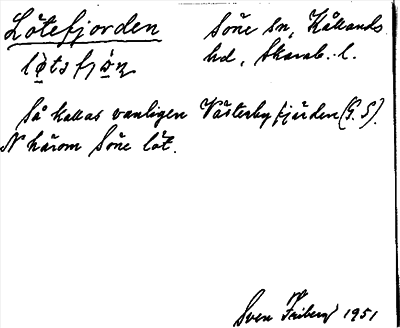 Lötefjorden Söne sn, Kållands
hd, Skarab. l.
Så kallas vanligen Västerbyfjärden (G.S).
N härom Söne löt.
Sven Friberg 1951